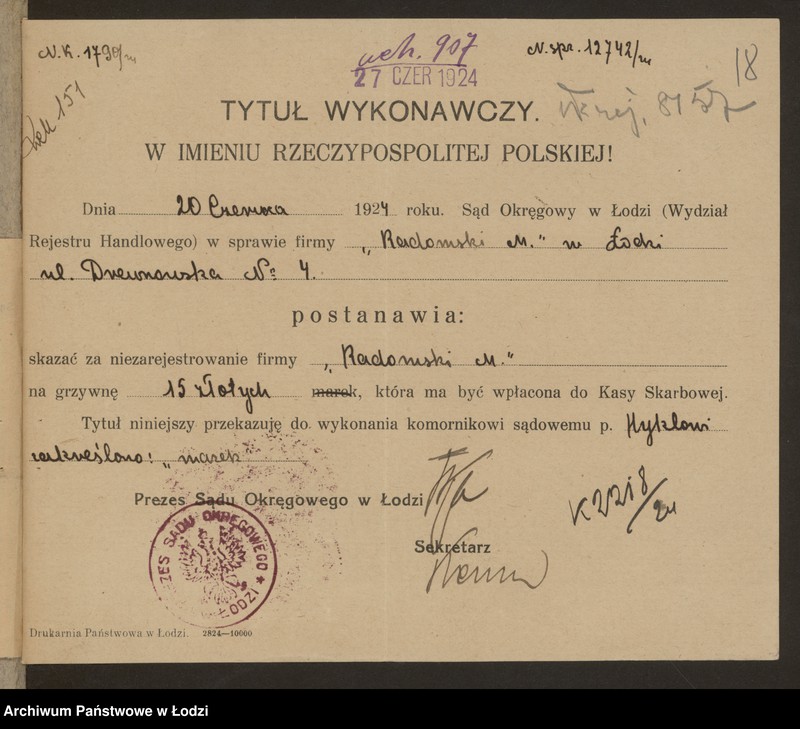 N. K. 1790/24
wch. 907
N. spr. 12742/24
18
27 CZER 1924
151
TYTUŁ WYKONAWCZY.
W IMIENIU RZECZYPOSPOLITEJ POLSKIEJ!
Dnia 20 Czerwca 1924 roku. Sąd Okręgowy w Łodzi (Wydział
Rejestru Handlowego) w sprawie firmy „Radomski M." w Łodzi
ul. Drewnowska № 4.
postanawia:
skazać za niezarejestrowanie firmy „Radomski M."
na grzywnę 15 złotych marek, która ma być wpłacona do Kasy Skarbowej.
Tytuł niniejszy przekazuję do wykonania komornikowi sądowemu p. Hyklowi
zakreślono: „marek
Prezes Sądu Okręgowego w Łodzi
K 2218/24
Sekretarz
PREZES SĄDU OKRĘGOWEGO * ŁODZI
Drukarnia Państwowa w Łodzi. 2824—10000
Archiwum Państwowe w Łodzi